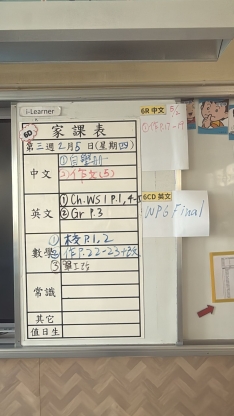 i-Learner
6D 家課表
第三週 2月5日(星期四)
中文
①自學冊一
②作文(5)
英文
① Ch. WS1 P.1, 4-5
② Gr P.3
數學
① 校P.1, 2
② 作P.22-23+改
③
常識
其它
值日生
6R 中文 5/2
6CD 英文
NP6 Final